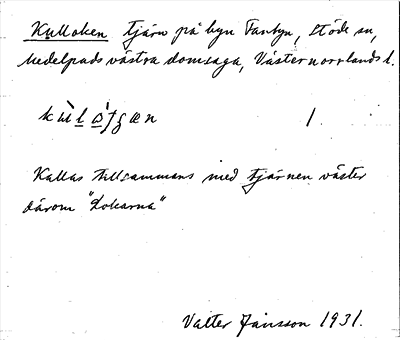 Kulloken tjärn på byn Fanbyn, Stöde sn,
Medelpads västra domsaga, Västernorrlands l.
Kallas tillsammans med tjärnen väster
därom "Lokarna"
Valter Jansson 1931.